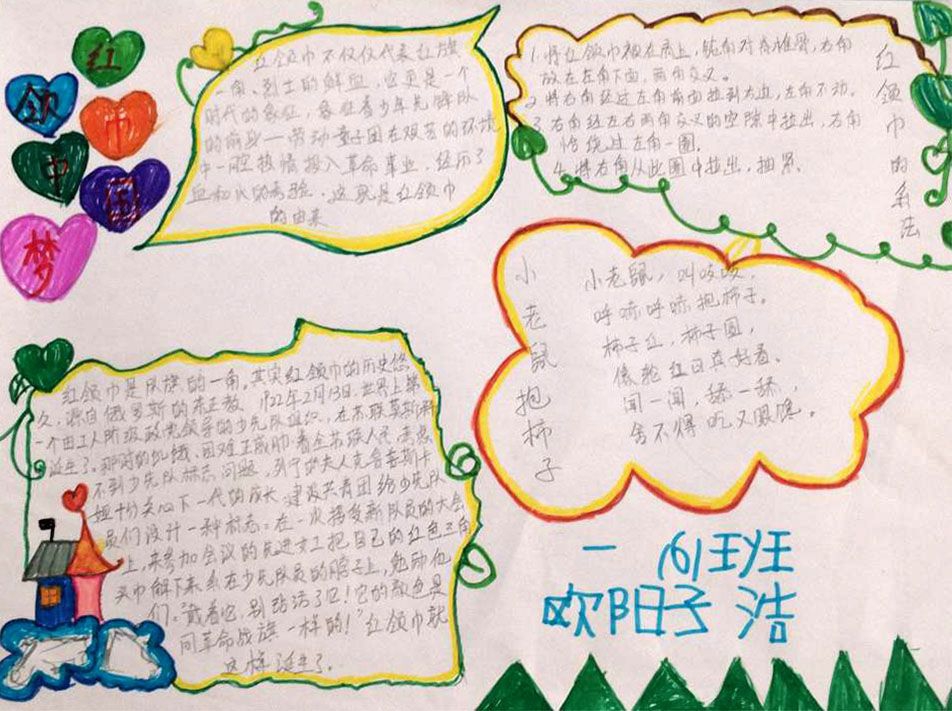 红
领
巾
中
国
梦
红领巾不仅仅代表红旗
一角、烈士的鲜血，它更是一个
时代的象征，象征着少年先锋队
的前身——劳动童子团在艰苦的环境
中一腔热情投入革命事业，经历了
血和火的考验。这就是红领巾
的由来
红领巾的系法
1.将红领巾披在肩上，钝角对脊椎骨，右角
放在左角下面，两角交叉。
2.将右角经过左角前面拉到右边，左角不动。
3.右角经左右两角交叉的空隙中拉出，右角
恰绕过左角一圈。
4.将右角从此圈中拉出，抽紧。
小老鼠抱柿子
小老鼠，叫吱吱，
呼哧呼哧抱柿子。
柿子红，柿子圆，
像轮红日真好看。
闻一闻，舔一舔，
舍不得吃又很馋。
红领巾是队旗的一角，其实红领巾的历史悠
久，源自俄罗斯的东正教。1922年2月13日，世界上第
一个由工人阶级政党领导的少先队组织，在苏联莫斯科
诞生了。那时的饥饿、困难正威胁着全苏联人民，考虑
不到少先队标志问题，列宁的夫人克鲁普斯卡
娅十分关心下一代的成长，建议共青团给少先队
员们设计一种标志。在一次接受新队员的大会
上，来参加会议的先进女工把自己的红色三角
头巾解下来系在少先队员的脖子上，勉励他
们。“戴着它，别玷污了它！它的颜色是
同革命战旗一样的！”红领巾就
这样诞生了。
一（6）班
欧阳子浩